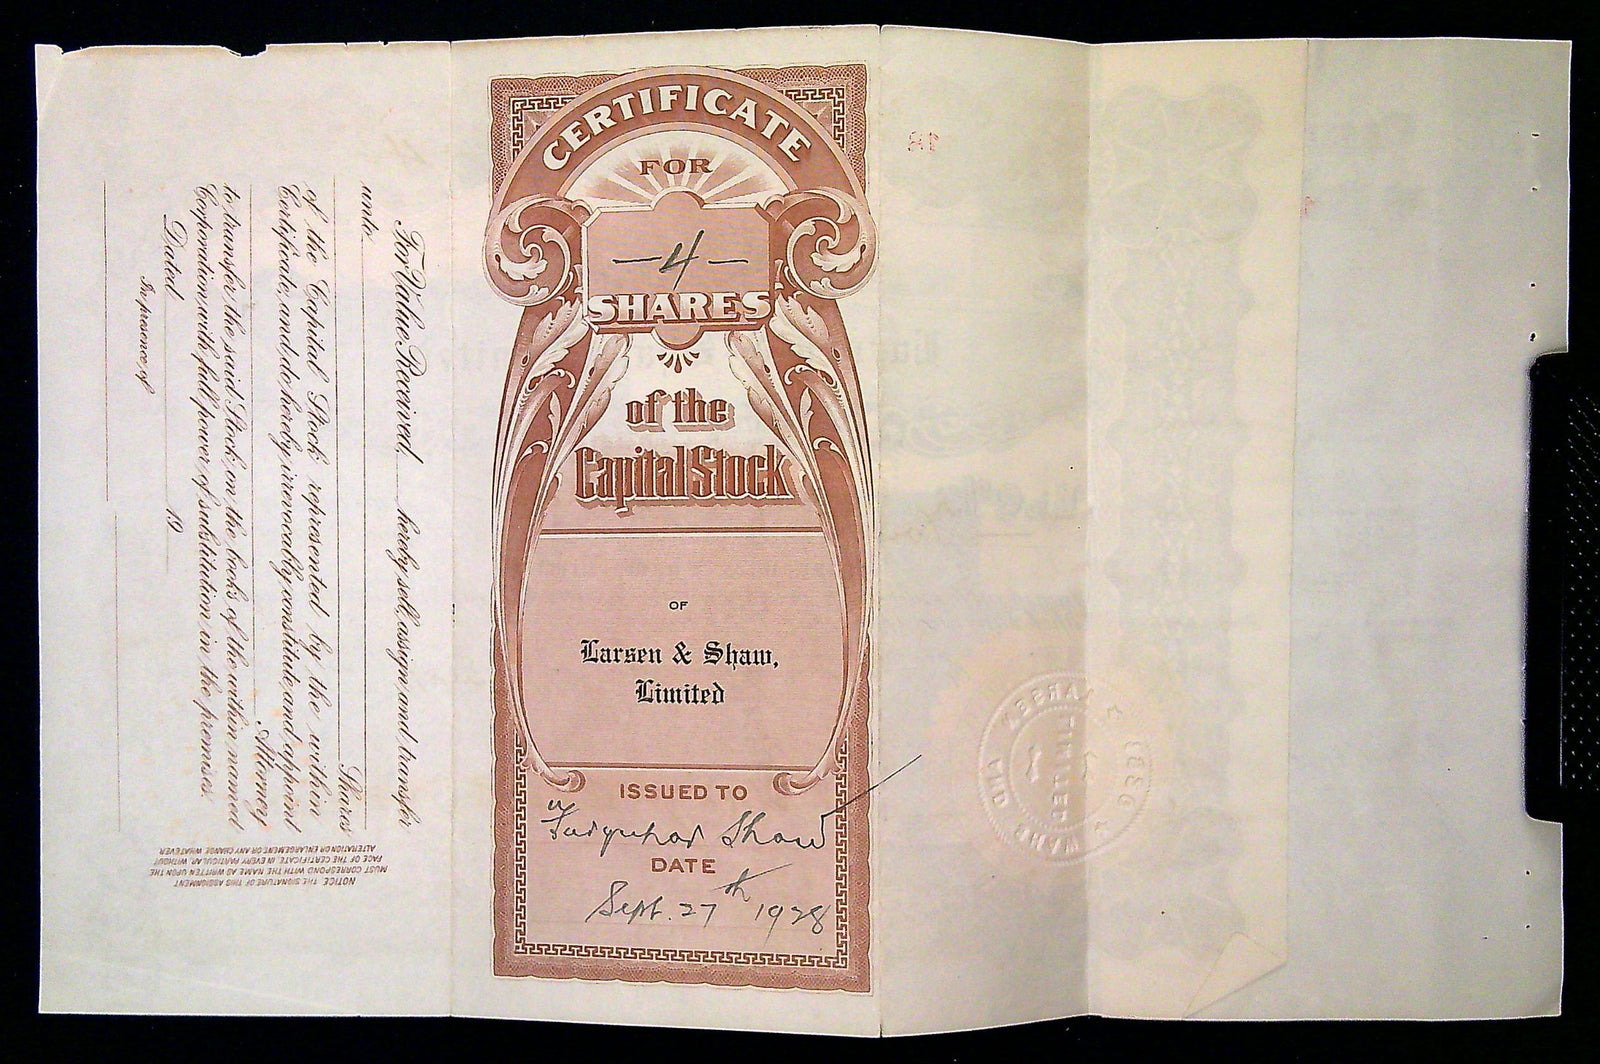 CERTIFICATE
FOR
—4—
SHARES
of the
Capital Stock
OF
Larsen & Shaw,
Limited
ISSUED TO
Farquhar Shaw
DATE
Sept. 27th 1928
For Value Received, hereby sell, assign and transfer
unto
Shares
of the Capital Stock represented by the within
Certificate, and do hereby irrevocably constitute and appoint
Attorney
to transfer the said Stock on the books of the within named
Corporation, with full power of substitution in the premises.
Dated 19
In presence of
NOTICE THE SIGNATURE OF THIS ASSIGNMENT
MUST CORRESPOND WITH THE NAME AS WRITTEN UPON THE
FACE OF THE CERTIFICATE IN EVERY PARTICULAR WITHOUT
ALTERATION OR ENLARGEMENT OR ANY CHANGE WHATEVER
LARSEN
LIMITED